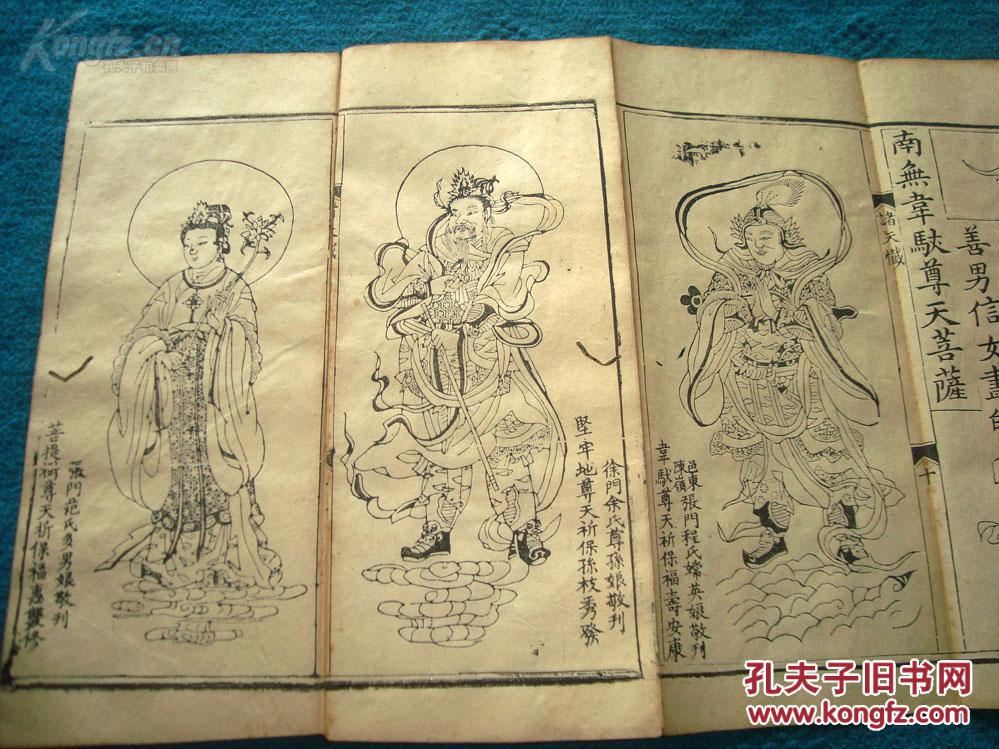 Kongfz.cn
孔夫子拍卖网
善男信女畫
南無韋馱尊天菩薩
諸天懺
十
邑東陳嶺張門程氏嫦英娘敬刊
韋馱尊天祈保福壽安康
徐門余氏尊孫娘敬刊
堅牢地尊天祈保孫枝秀發
張門范氏多男娘敬刊
尊天祈保福惠雙修
孔夫子旧书网
www.kongfz.com